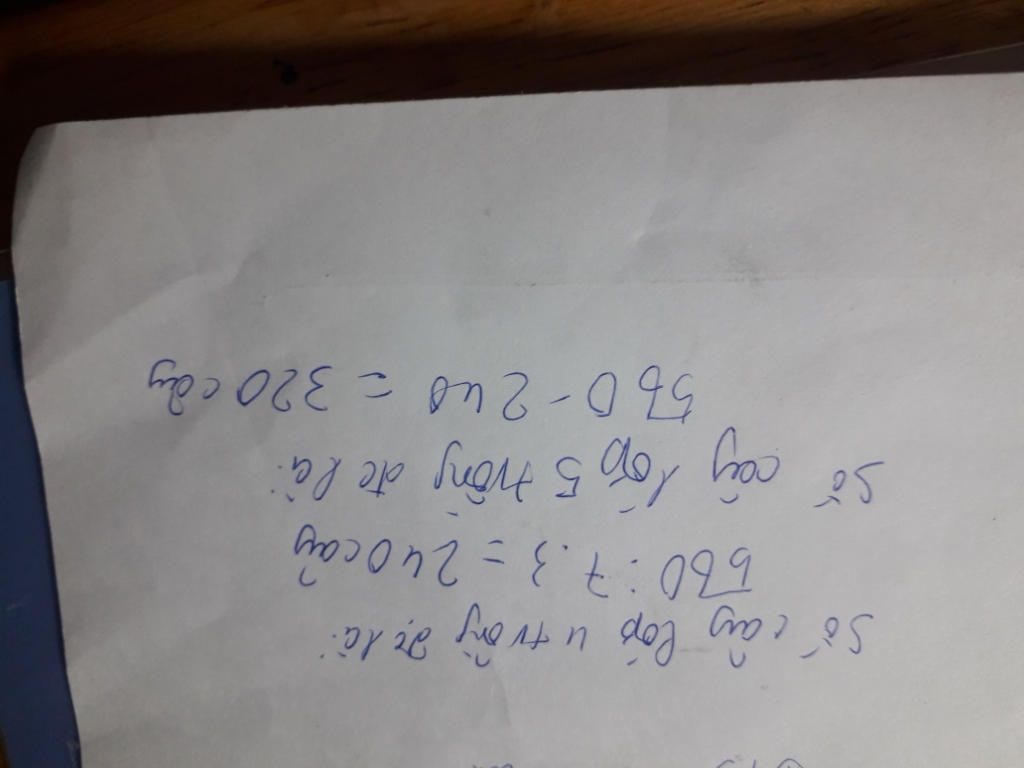 Số cây lớp 4 trồng đc là:
560 : 7 . 3 = 240 cây
Số cây lớp 5 trồng đc là:
560 - 240 = 320 cây